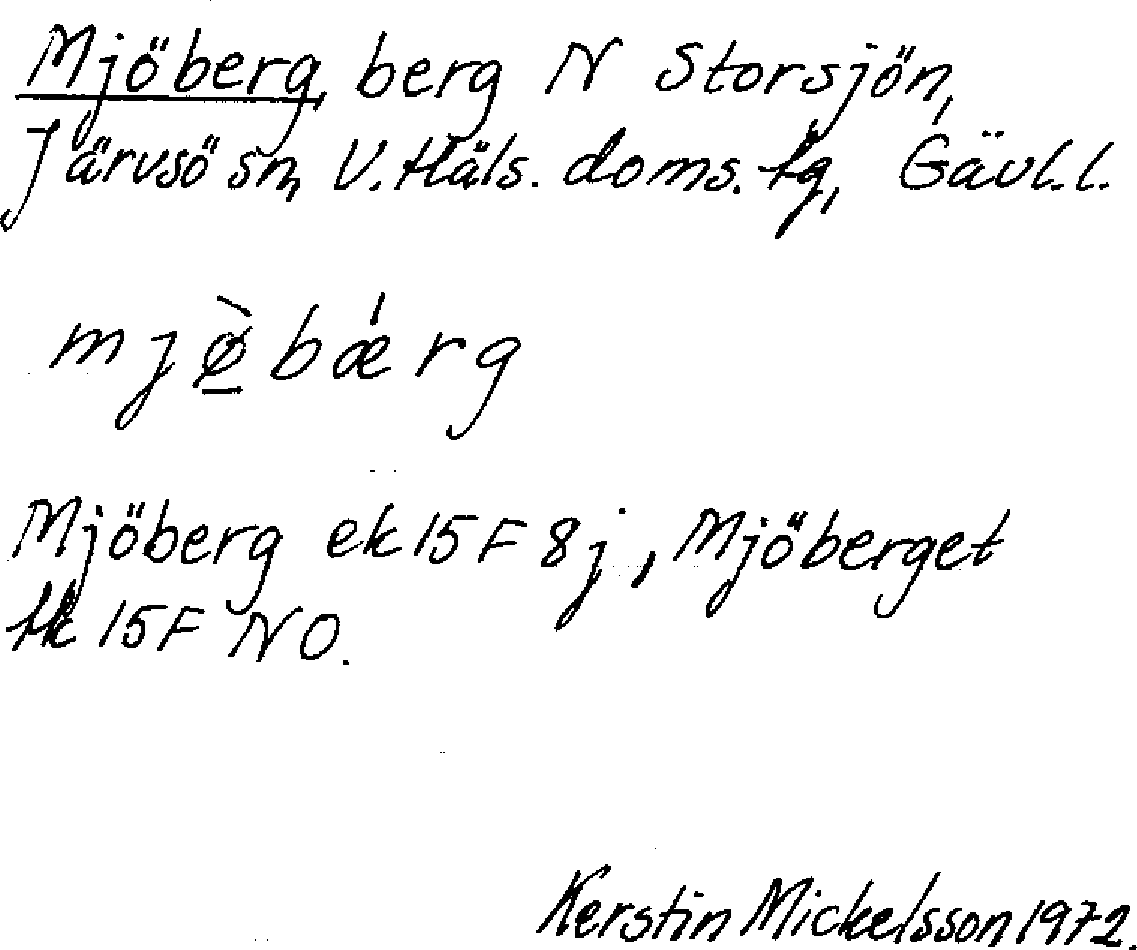 Mjöberg, berg N Storsjön,
Järvsö sn, V. Häls. doms. tg, Gävl.l.
mjø̠̀bǽrg
Mjöberg ek 15 F 8 j, Mjöberget
tk 15F NO.
Kerstin Mickelsson 1972.